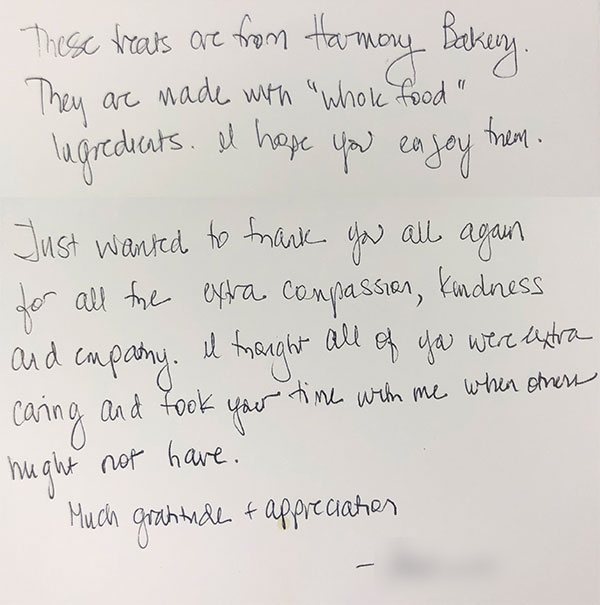 These treats are from Harmony Bakery.
They are made with "whole food"
Ingredients. I hope you enjoy them.
Just wanted to thank you all again
for all the extra compassion, kindness
and empathy. I thought all of you were extra
caring and took your time with me when others
might not have.
Much gratitude + appreciation
—